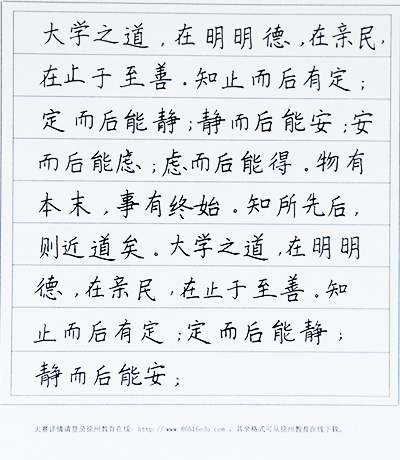 大学之道，在明明德，在亲民，
在止于至善。知止而后有定；
定而后能静；静而后能安；安
而后能虑；虑而后能得。物有
本末，事有终始。知所先后，
则近道矣。大学之道，在明明
德，在亲民，在止于至善。知
止而后有定；定而后能静；
静而后能安；
大赛详情请登录徐州教育在线：http://www.86516edu.com 。其余格式可从徐州教育在线下载。